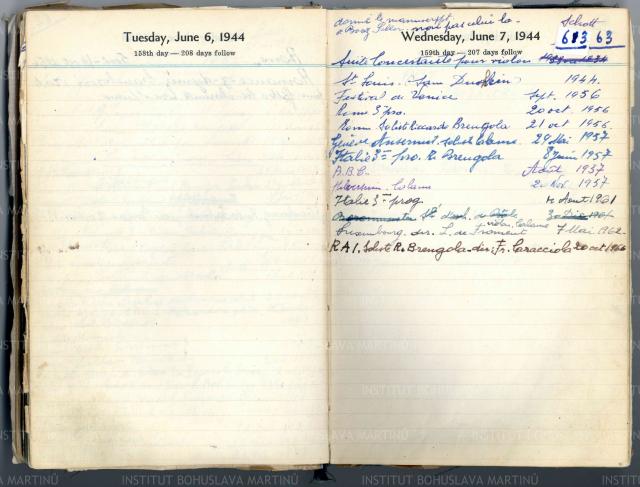 Tuesday, June 6, 1944
158th day — 208 days follow
donné le manuscript
a Boaz Piller non pas celui la
Schott
Wednesday, June 7, 1944
159th day — 207 days follow
693 63
Suite Concertante pour violon
St Louis Sam Dushkin 1944.
Festival de Venice Sept. 1956
Rome 3 pro. 20 oct 1956
Rome Solist Riccardo Brengola 21 oct 1956.
Genève Ansermet, solist Calame 29 Mai 1957
Italie 3 pro. R. Brengola 8 Juin 1957
B.B.C. Août 1957
Hilversum. Calame 2 Nov. 1957
Italie 3 prog 12 Aout 1961
violon, Calame
Luxembourg. dir. L. de Froment 7 Mai 1962
R A I. Soliste R. Brengola - dir: Fr. Caracciola 20 oct 1966
INSTITUT BOHUSLAVA MARTINŮ